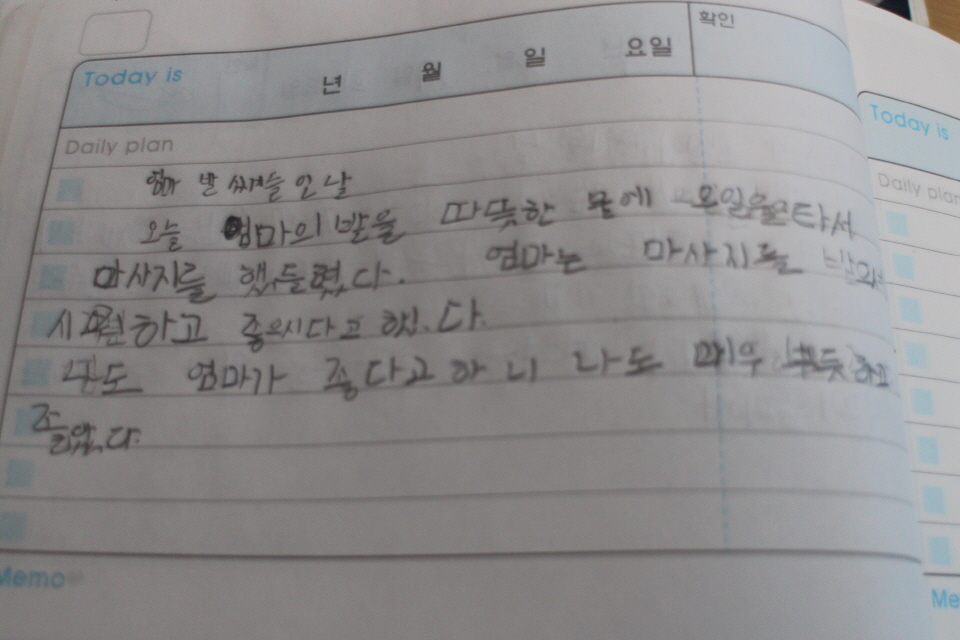 Today is 년 월 일 요일 확인
Daily plan
엄마 발 씻겨 날
오늘 엄마의 발을 따뜻한 물에 오일을 타서
마사지를 했다. 엄마는 마사지를
시원하고 좋으시다고 했다.
나도 엄마가 좋다고 하니 나도 매우 뿌듯하고
좋았다.
Memo
Today is
Daily plan
Me